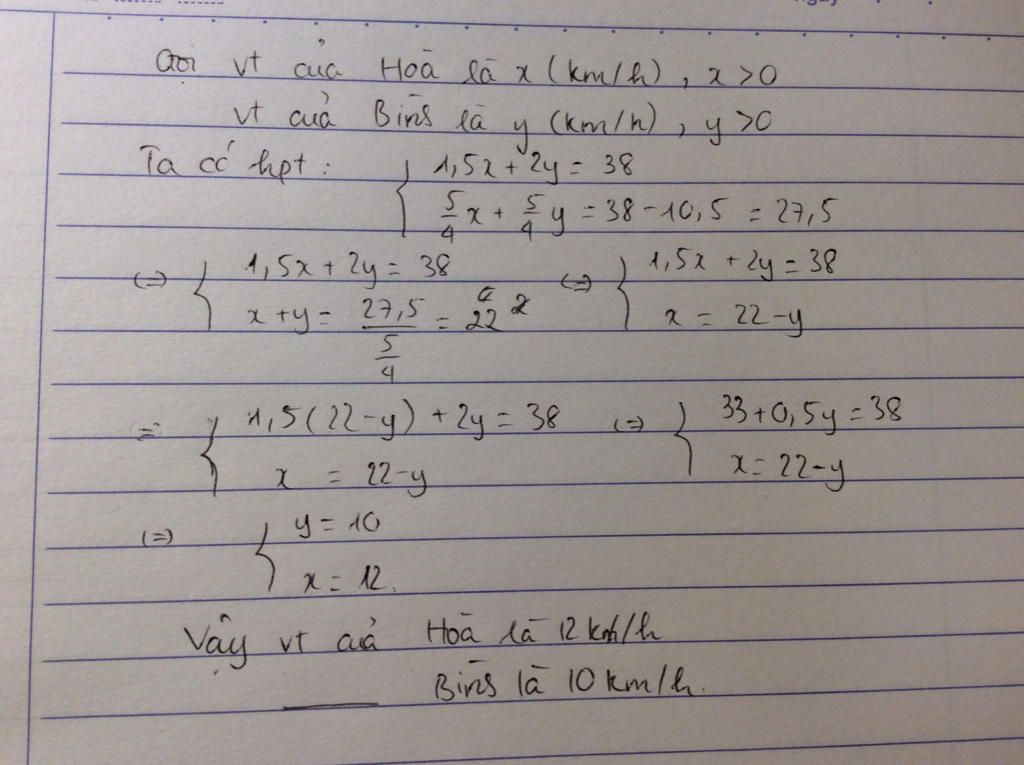 Gọi vt của Hoà là x (km/h), x>0
vt của Bình là y (km/h), y>0
Ta có hpt: { 1,5x + 2y = 38
5/4 x + 5/4 y = 38 - 10,5 = 27,5
(=) { 1,5x + 2y = 38 (=) { 1,5x + 2y = 38
x + y = 27,5 / (5/4) = 22 x = 22 - y
= { 1,5(22-y) + 2y = 38 (=) { 33 + 0,5y = 38
x = 22 - y x = 22 - y
(=) { y = 10
x = 12.
Vậy vt của Hoà là 12 km/h
Bình là 10 km/h.